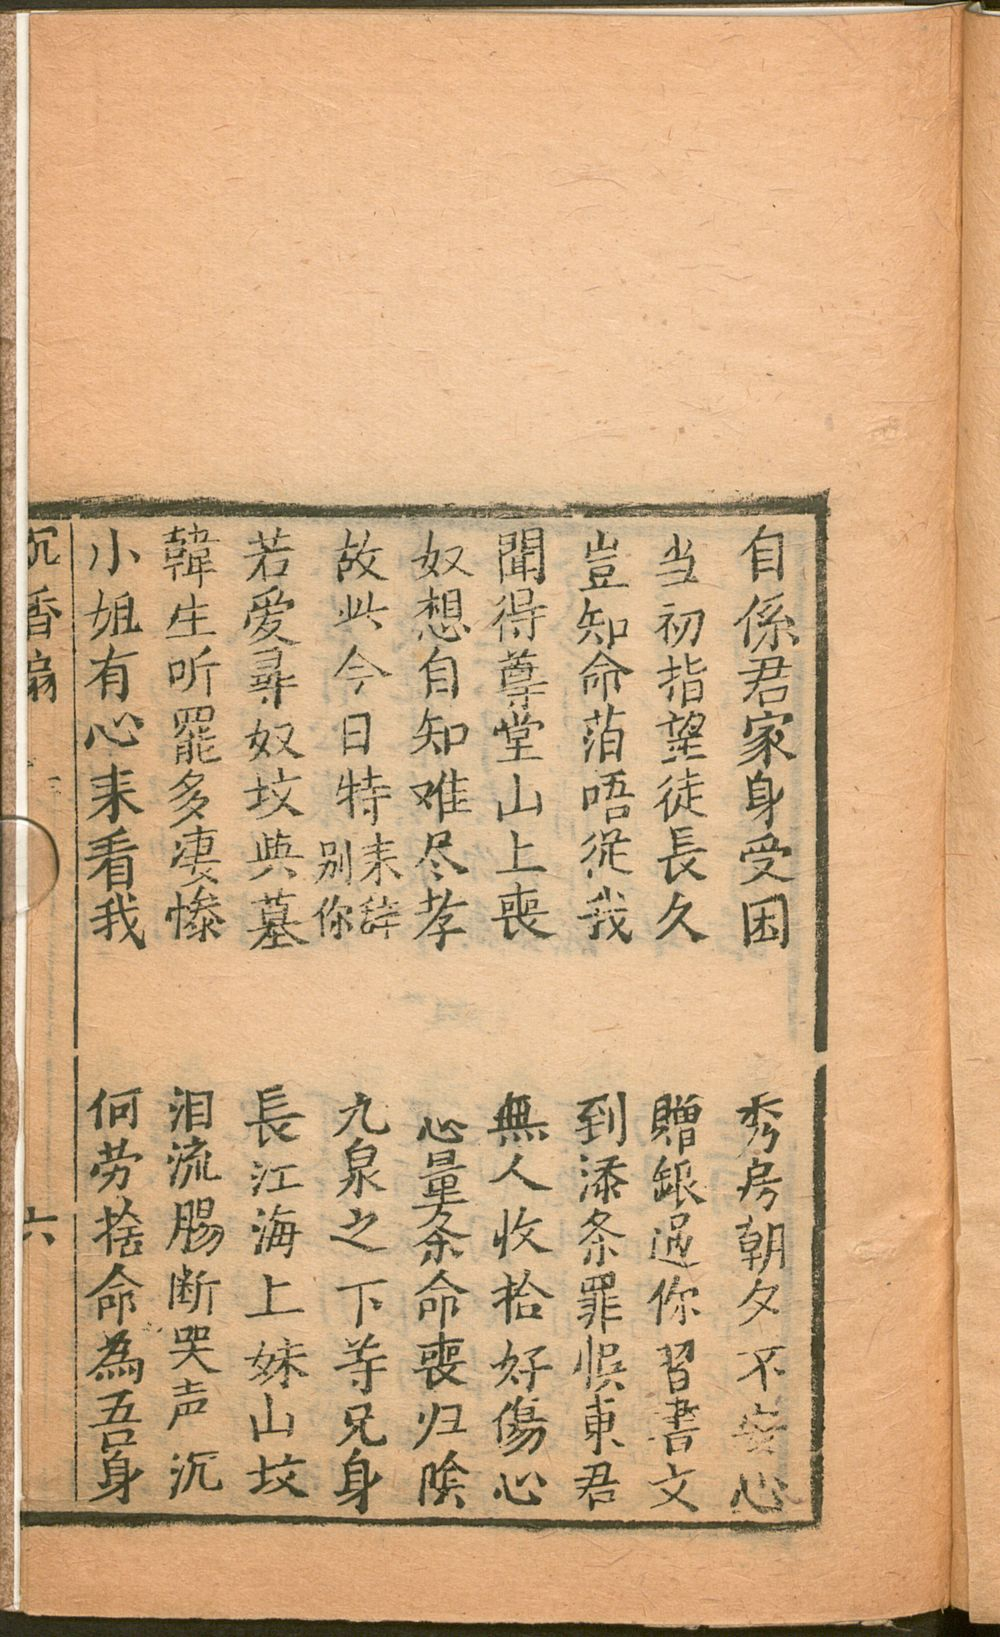 自係君家身受困　秀房朝夕不安心
当初指望徒長久　贈銀過你習書文
豈知命萡唔從我　到添条罪悮東君
聞得尊堂山上喪　無人收拾好傷心
奴想自知难尽孝　心量条命喪归陰
故此今日特耒辞别你　九泉之下等兄身
若爱尋奴坟與墓　長江海上妹山坟
韓生听罷多凄惨　泪流腸断哭声沉
小姐有心耒看我　何劳捨命為吾身
沉香扇　六